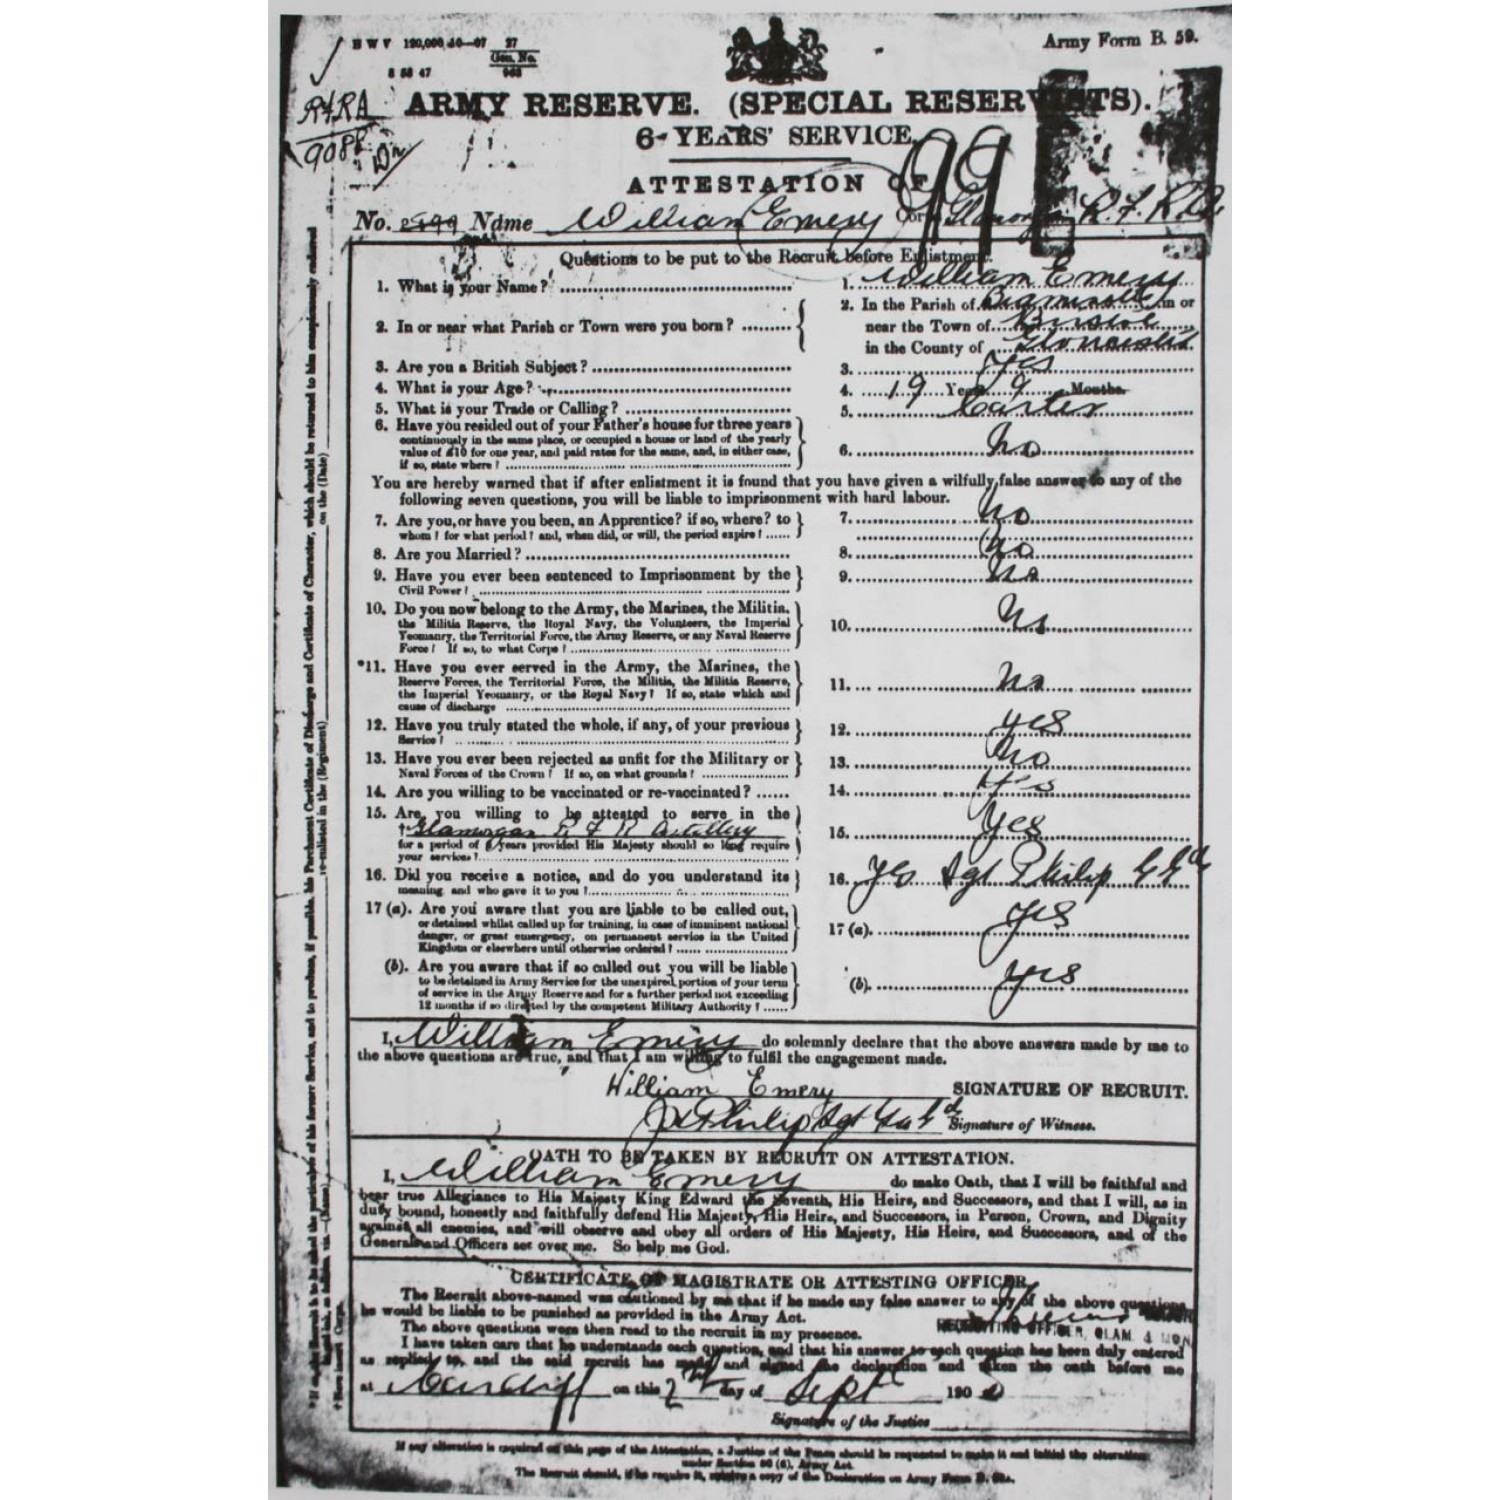 H W V 120,000 10—07 27
Gen. No.
8 58 47 963
Army Form B. 59.
RFRA
908
ARMY RESERVE. (SPECIAL RESERVISTS).
6-YEARS' SERVICE.
99
ATTESTATION OF
No. Name William Emery Corps Glamorgan R. F. R. A.
Questions to be put to the Recruit before Enlistment.
1. What is your Name? 1. William Emery
2. In or near what Parish or Town were you born? 2. In the Parish of in or
near the Town of Bristol
in the County of Gloucester
3. Are you a British Subject? 3. Yes
4. What is your Age? 4. 19 Years 9 Months.
5. What is your Trade or Calling? 5. Carter
6. Have you resided out of your Father's house for three years
continuously in the same place, or occupied a house or land of the yearly
value of £10 for one year, and paid rates for the same, and, in either case,
if so, state where? 6. No
You are hereby warned that if after enlistment it is found that you have given a wilfully false answer to any of the
following seven questions, you will be liable to imprisonment with hard labour.
7. Are you, or have you been, an Apprentice? if so, where? to 7. No
whom? for what period? and, when did, or will, the period expire?
8. Are you Married? 8. No
9. Have you ever been sentenced to Imprisonment by the 9. No
Civil Power?
10. Do you now belong to the Army, the Marines, the Militia,
the Militia Reserve, the Royal Navy, the Volunteers, the Imperial 10. No
Yeomanry, the Territorial Force, the Army Reserve, or any Naval Reserve
Force? If so, to what Corps?
*11. Have you ever served in the Army, the Marines, the
Reserve Forces, the Territorial Force, the Militia, the Militia Reserve, 11. No
the Imperial Yeomanry, or the Royal Navy? If so, state which and
cause of discharge
12. Have you truly stated the whole, if any, of your previous 12. Yes
Service?
13. Have you ever been rejected as unfit for the Military or 13. No
Naval Forces of the Crown? If so, on what grounds?
14. Are you willing to be vaccinated or re-vaccinated? 14. Yes
15. Are you willing to be attested to serve in the
†Glamorgan R F R Artillery 15. Yes
for a period of 6 years provided His Majesty should so long require
your services?
16. Did you receive a notice, and do you understand its 16. Yes Sgt Philip
meaning, and who gave it to you?
17 (a). Are you aware that you are liable to be called out,
or detained whilst called up for training, in case of imminent national 17 (a). Yes
danger, or great emergency, on permanent service in the United
Kingdom or elsewhere until otherwise ordered?
(b). Are you aware that if so called out you will be liable
to be detained in Army Service for the unexpired portion of your term (b). Yes
of service in the Army Reserve and for a further period not exceeding
12 months if so directed by the competent Military Authority?
I, William Emery do solemnly declare that the above answers made by me to
the above questions are true, and that I am willing to fulfil the engagement made.
William Emery SIGNATURE OF RECRUIT.
Philip Sgt Signature of Witness.
OATH TO BE TAKEN BY RECRUIT ON ATTESTATION.
I, William Emery do make Oath, that I will be faithful and
bear true Allegiance to His Majesty King Edward the Seventh, His Heirs, and Successors, and that I will, as in
duty bound, honestly and faithfully defend His Majesty, His Heirs, and Successors, in Person, Crown, and Dignity
against all enemies, and will observe and obey all orders of His Majesty, His Heirs, and Successors, and of the
Generals and Officers set over me. So help me God.
CERTIFICATE OF MAGISTRATE OR ATTESTING OFFICER.
The Recruit above-named was cautioned by me that if he made any false answer to any of the above questions
he would be liable to be punished as provided in the Army Act.
The above questions were then read to the recruit in my presence.
RECRUITING OFFICER, GLAM. & MON
I have taken care that he understands each question, and that his answer to each question has been duly entered
as replied to, and the said recruit has made and signed the declaration and taken the oath before me
at Cardiff on this 2nd day of Sept 190
Signature of the Justice
If any alteration is required on this page of the Attestation, a Justice of the Peace should be requested to make it and initial the alteration
under Section 80 (6), Army Act.
The Recruit should, if he require it, receive a copy of the Declaration on Army Form
* If so, the Recruit is to be asked the particulars of his former Service, and to produce, if possible, his Parchment Certificate of Discharge and Certificate of Character, which should be returned to him conspicuously endorsed
re-enlisted in the (Regiment) on the (Date)
† Here insert Corps.